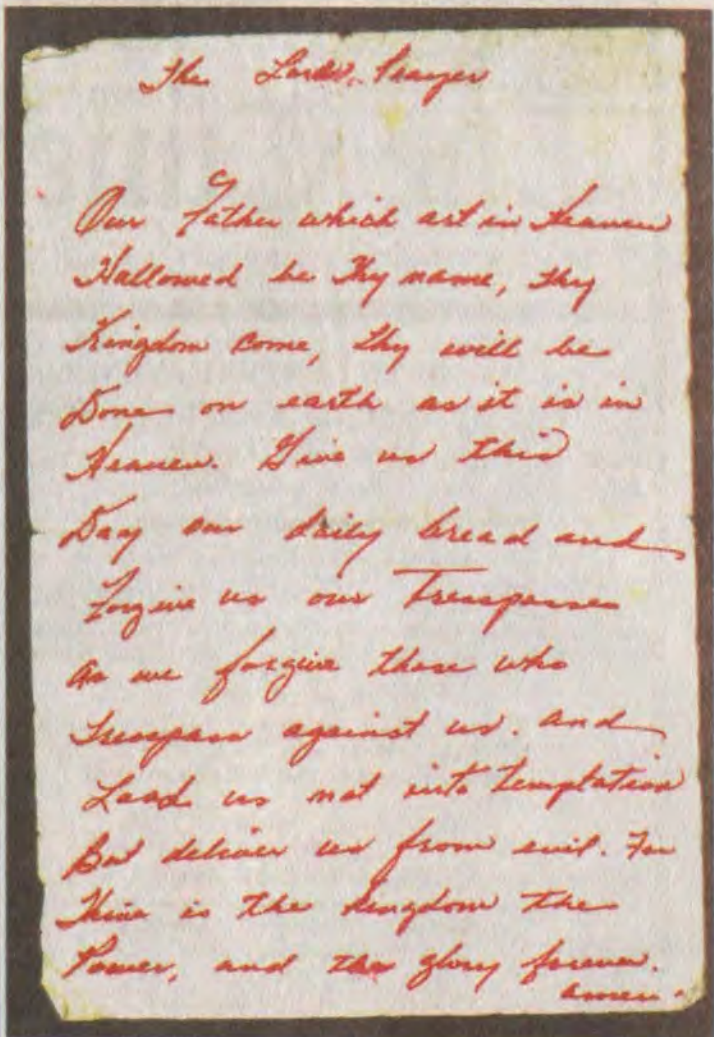 The Lords, Prayer
Our Father which art in Heaven
Hallowed be Thy name, thy
Kingdom Come, thy will be
Done on earth as it is in
Heaven. Give us this
Day our daily bread and
Forgive us our Trespasses
As we forgive those who
Trespass against us. And
Lead us not into Temptation
But deliver us from evil. For
Thine is the Kingdom the
Power, and the glory forever.
Amen.